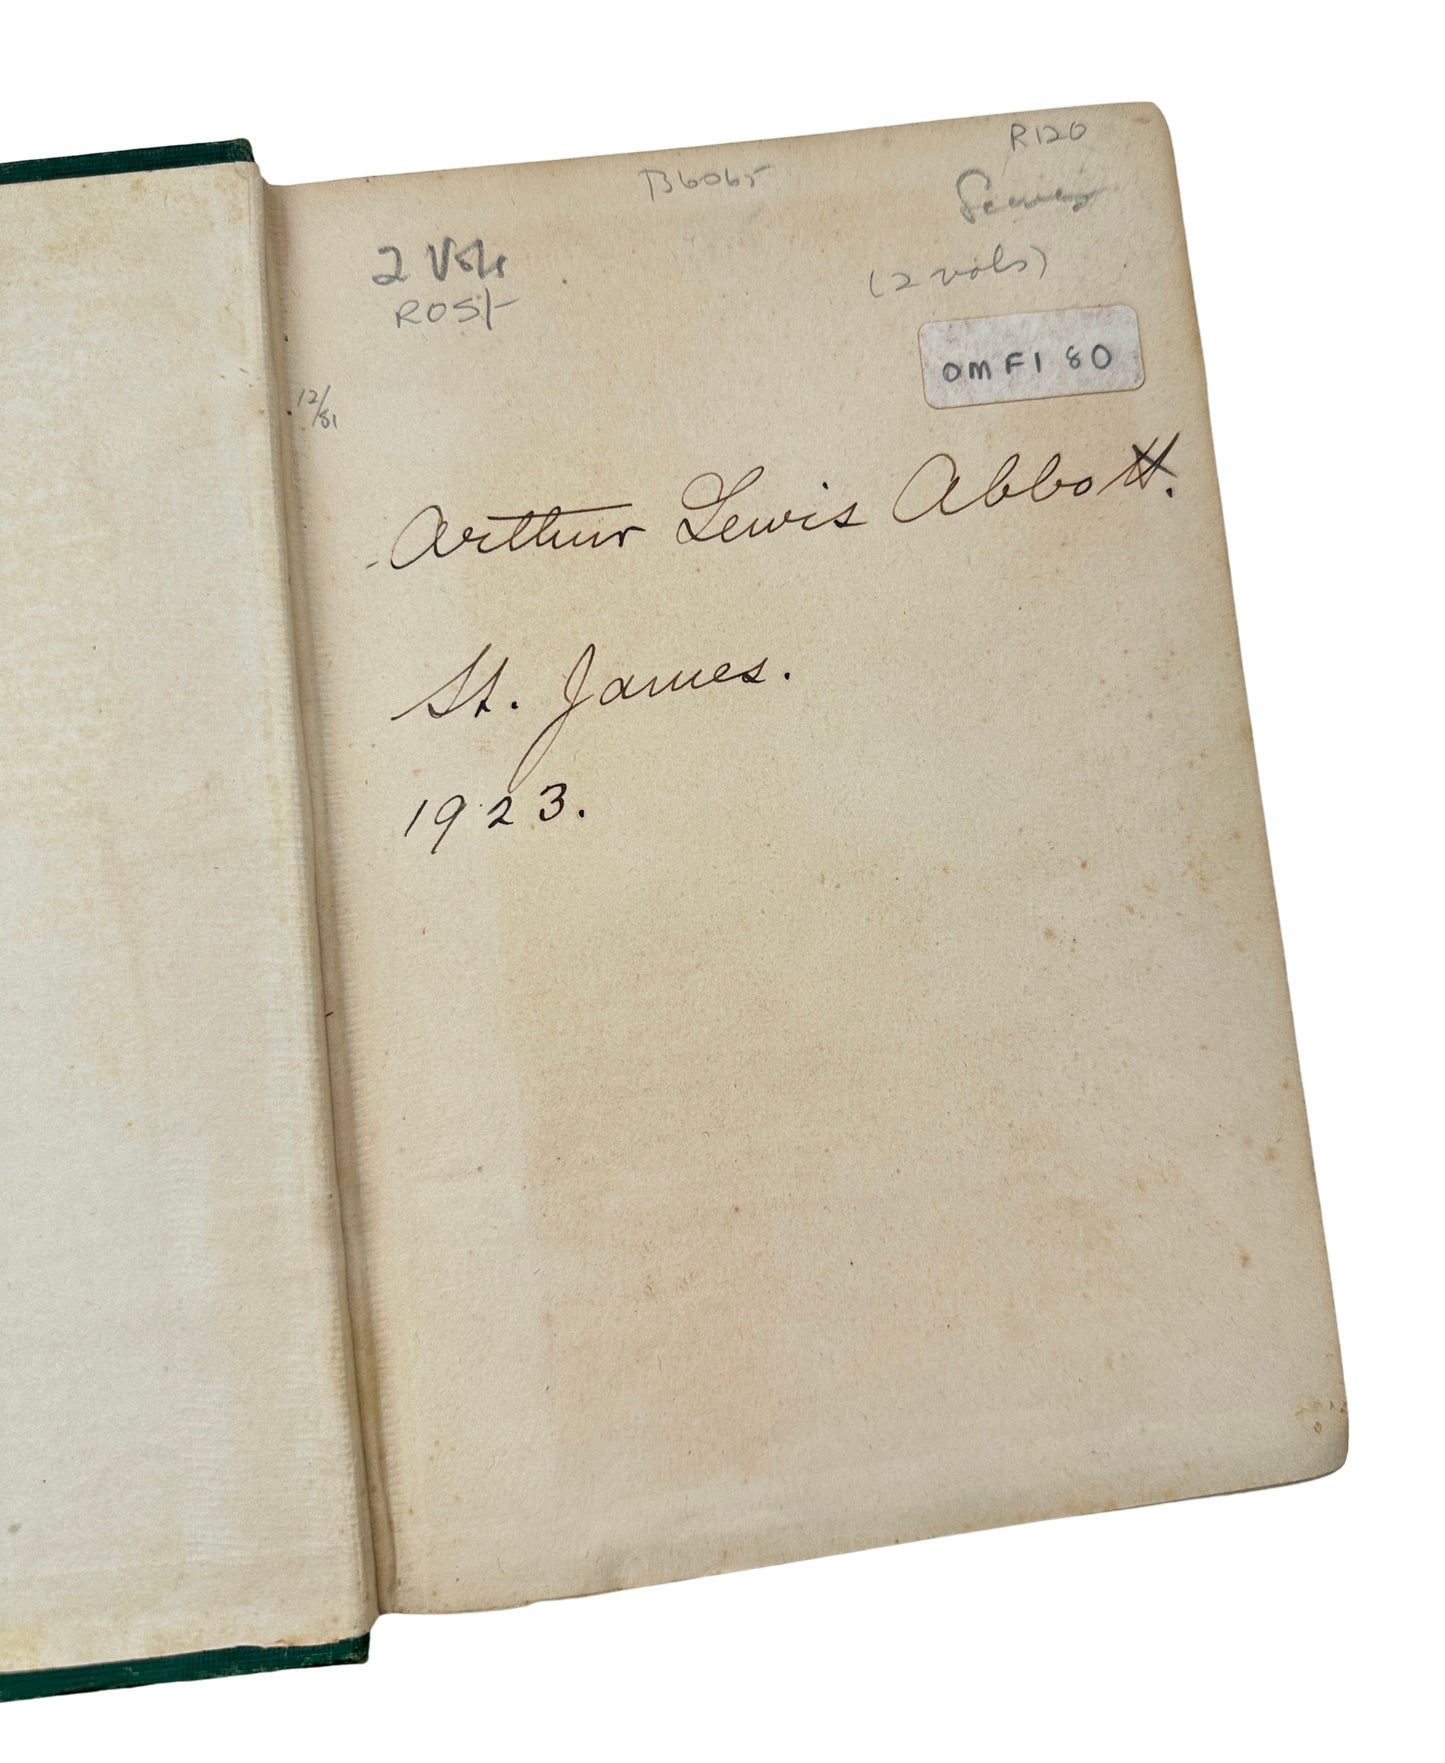 R120
B6065
2 Vols
(2 vols)
OMFI 80
12/81
Arthur Lewis Abbott.
St. James.
1923.